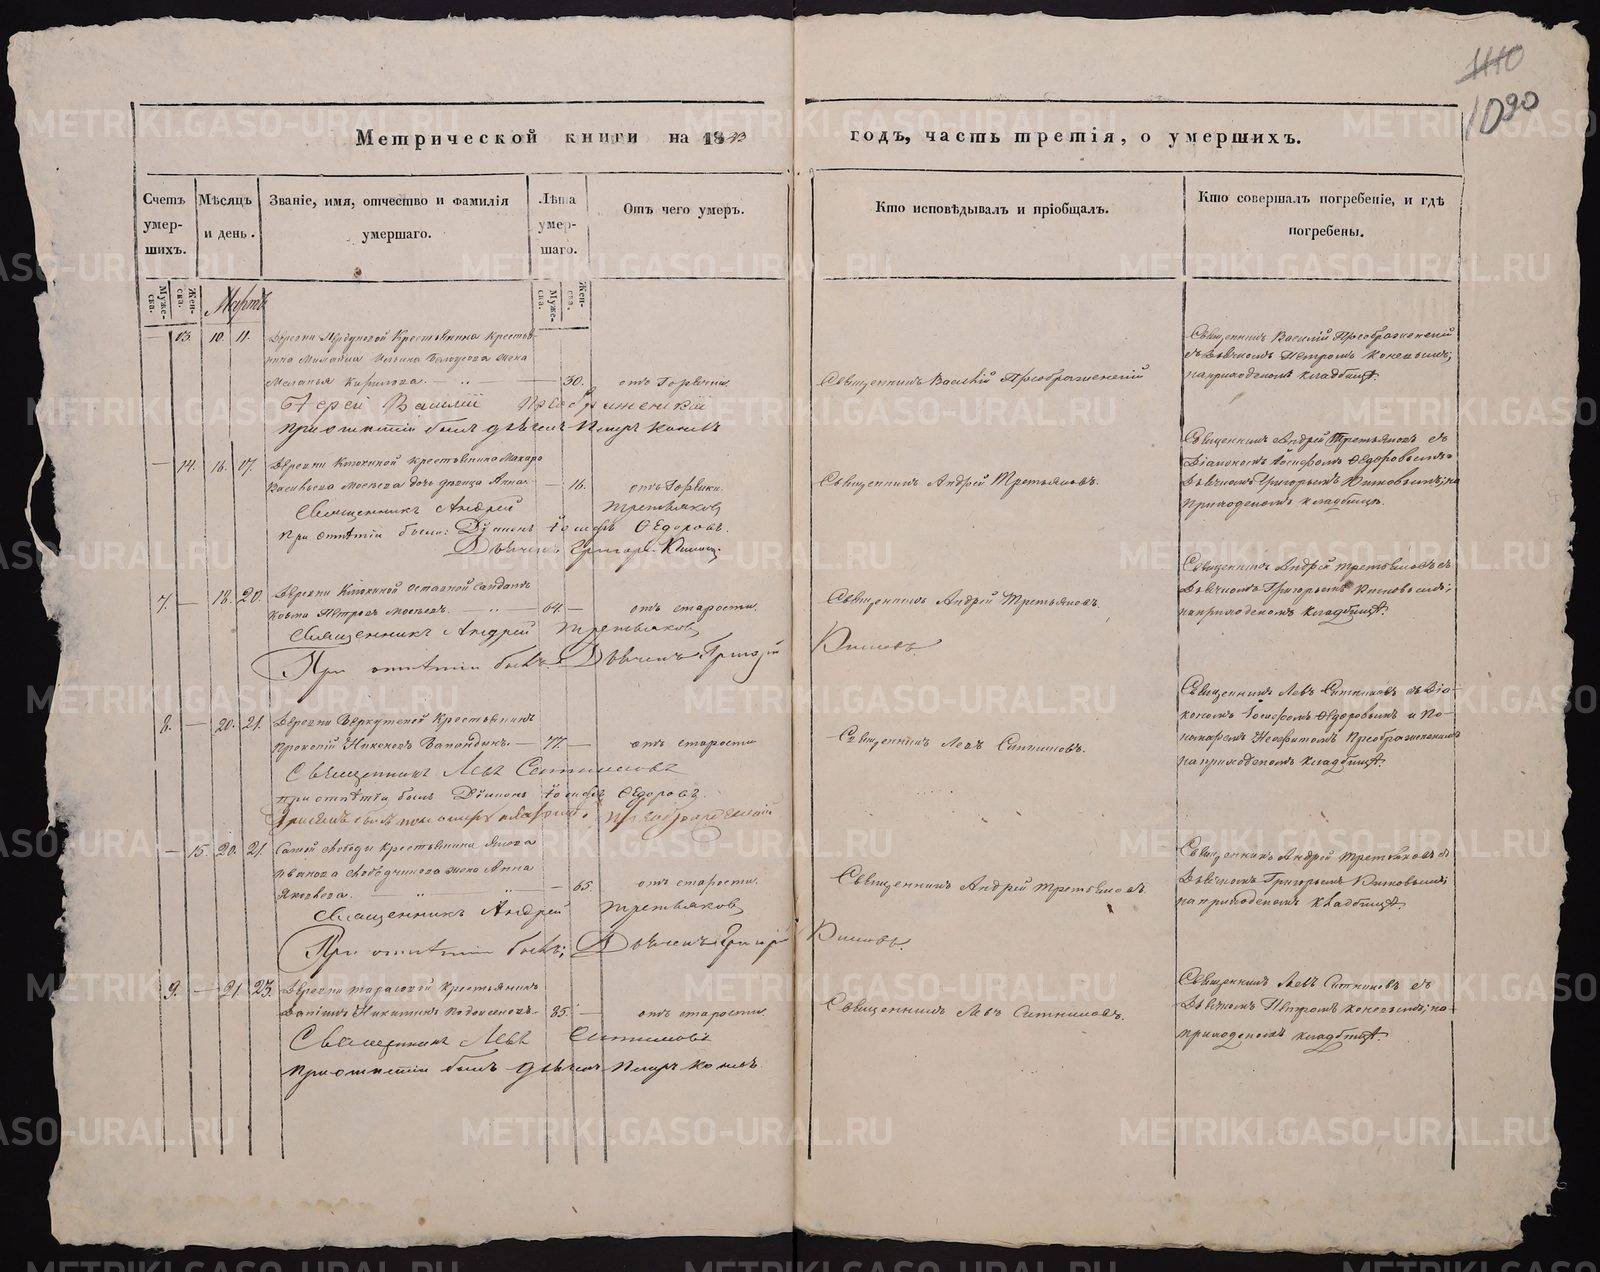 1110
1090
Метрической книги на 1843
годъ, часть третія, о умершихъ.
Счетъ умер-шихъ.
Мѣсяцъ и день.
Званіе, имя, отчество и фамилія умершаго.
Лѣта умер-шаго.
Отъ чего умеръ.
Кто исповѣдывалъ и пріобщалъ.
Кто совершалъ погребеніе, и гдѣ погребены.
Муже-ска.
Жен-ска.
Мартъ
Муже-ска.
Жен-ска.
— 13. 10. 11. Деревни Крестьянина
Ильина жена
Меланья Кирилова. — 30. отъ Горячки
Священникъ Василій Преображенскій
Священникъ Василій Преображенскій
съ Дьячкомъ Петромъ Коневымъ;
на приходскомъ кладбищѣ.
Іерей Василій Преображенскій
При отпѣтіи былъ дьячекъ Петръ Коневъ
— 14. 16. 17. Деревни Клюкиной Крестьянина Макара
Васильева Мосѣева дочь девица Анна — 16. отъ Горячки.
Священникъ Андрей Третьяковъ.
Священникъ Андрей Третьяковъ съ
Діакономъ Іосифомъ Ѳедоровымъ
Дьячкомъ Григорьемъ на
Приходскомъ кладбищѣ.
Священникъ Андрей Третьяковъ
При отпѣтіи были: Діаконъ Іосифъ Ѳедоровъ.
Дьячекъ Григорій
7. — 18. 20. Деревни Клюкиной Отставной Солдатъ
Козма Петровъ Мосѣевъ. — 64. — отъ старости.
Священникъ Андрей Третьяковъ.
Священникъ Андрей Третьяковъ съ
Дьячкомъ Григорьемъ
на приходскомъ кладбищѣ.
Священникъ Андрей Третьяковъ
При отпѣтіи былъ: Дьячекъ Григорій
8. — 20. 21. Деревни Крестьянинъ
Прокопій Никоновъ — 77. — отъ старости
Священникъ Левъ Ситниковъ.
Священникъ Левъ Ситниковъ съ Діа-
кономъ Іосифомъ Ѳедоровымъ и По-
номаремъ Преображенскимъ
на приходскомъ кладбищѣ.
Священникъ Левъ Ситниковъ
при отпѣтіи былъ Діаконъ Іосифъ Ѳедоровъ.
Преображенскій
— 15. 20. 21. Самой Слободы Крестьянина Якова
Иванова жена Анна
Яковлева. — 65. отъ старости.
Священникъ Андрей Третьяковъ.
Священникъ Андрей Третьяковъ съ
Дьячкомъ Григорьемъ
на приходскомъ кладбищѣ.
Священникъ Андрей Третьяковъ
При отпѣтіи былъ; Дьячекъ Григорій
9. — 21. 23. Деревни Тарасовой Крестьянинъ
Никитинъ — 85. — отъ старости.
Священникъ Левъ Ситниковъ.
Священникъ Левъ Ситниковъ съ
Дьячкомъ Петромъ Коневымъ; на
приходскомъ кладбищѣ.
Священникъ Левъ Ситниковъ
При отпѣтіи былъ дьячекъ Петръ Коневъ.
METRIKI.GASO-URAL.RU